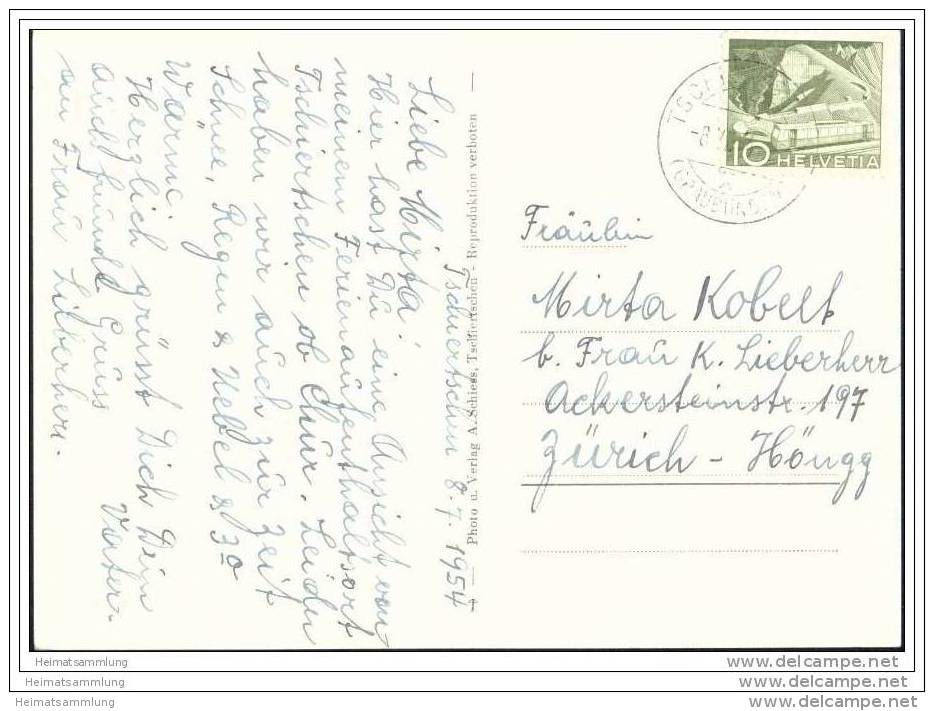 Tschiertschen 8.7.1954
Liebe Mirta!
Hier hast Du eine Ansicht von
meinem Ferienaufenthaltsort
Tschiertschen ob Chur. Leider
haben wir auch zur Zeit
Schnee, Regen & Nebel & 3°
Wärme.
Herzlich grüsst Dich Dein
Vater.
auch freundl Gruss
an Frau Lieberherr.
Photo u. Verlag A. Schiess, Tschiertschen - Reproduktion verboten
10 HELVETIA
Fräulein
Mirta Kobelt
b. Frau K. Lieberherr
Ackersteinstr. 197
Zürich - Höngg
Heimatsammlung
Heimatsammlung
Heimatsammlung
www.delcampe.net
www.delcampe.net
www.delcampe.net